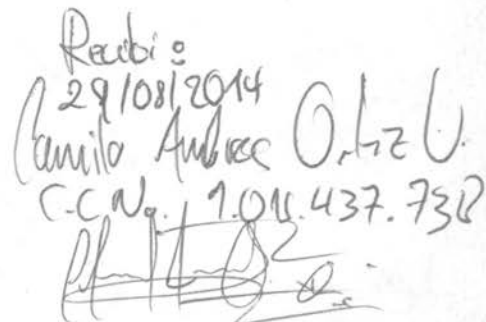 Recibi:
29/08/2014
Camilo Andres Ortiz U.
C.C No. 437.738